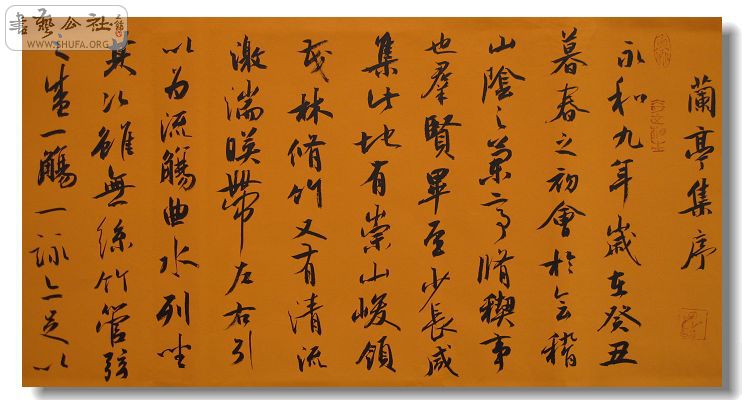 蘭亭集序
永和九年歲在癸丑
暮春之初會於會稽
山陰之蘭亭脩稧事
也羣賢畢至少長咸
集此地有崇山峻領
茂林脩竹又有清流
激湍暎帶左右引
以為流觴曲水列坐
其次雖無絲竹管弦
之盛一觴一詠亦足以
書藝公社
WWW.SHUFA.ORG